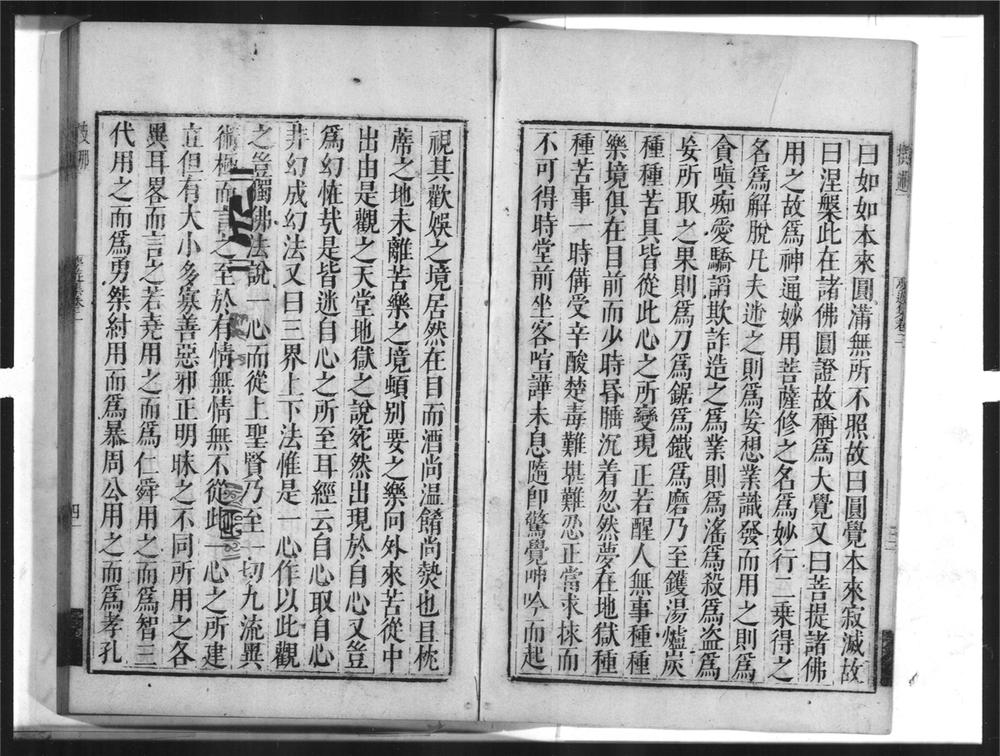 曰如如本來圓滿無所不照故曰圓覺本來寂滅故
曰涅槃此在諸佛圓證故稱爲大覺又曰菩提諸佛
用之故爲神通妙用菩薩修之名爲妙行二乗得之
名爲解脫凡夫迷之則爲妄想業識發而用之則爲
貪嗔痴愛驕謟欺詐造之爲業則爲滛爲殺爲盗爲
妄所取之果則爲刀爲鋸爲鐵爲磨乃至鑊湯爐炭
種種苦具皆從此心之所變現正若醒人無事種種
樂境俱在目前而少時昬睡沉着忽然夢在地獄種
種苦事一時俻受辛酸楚毒難堪難忍正當求捄而
不可得時堂前坐客喧譁未息隨卽驚覺呻吟而起
視其歡娛之境居然在目而酒尚温餚尚熒也且枕
蓆之地未離苦樂之境頓别要之樂向外來苦從中
出由是觀之天堂地獄之說宛然出現於自心又豈
爲幻恠㢤是皆迷自心之所至耳經云自心取自心
非幻成幻法又曰三界上下法惟是一心作以此觀
之豈獨佛法說一心而從上聖賢乃至一切九流異
術極而言之至於有情無情無不從此一心之所建
立但有大小多寡善惡邪正明昧之不同所用之各
異耳畧而言之若堯用之而爲仁舜用之而爲智三
代用之而爲勇桀紂用而爲暴周公用之而爲孝孔
四